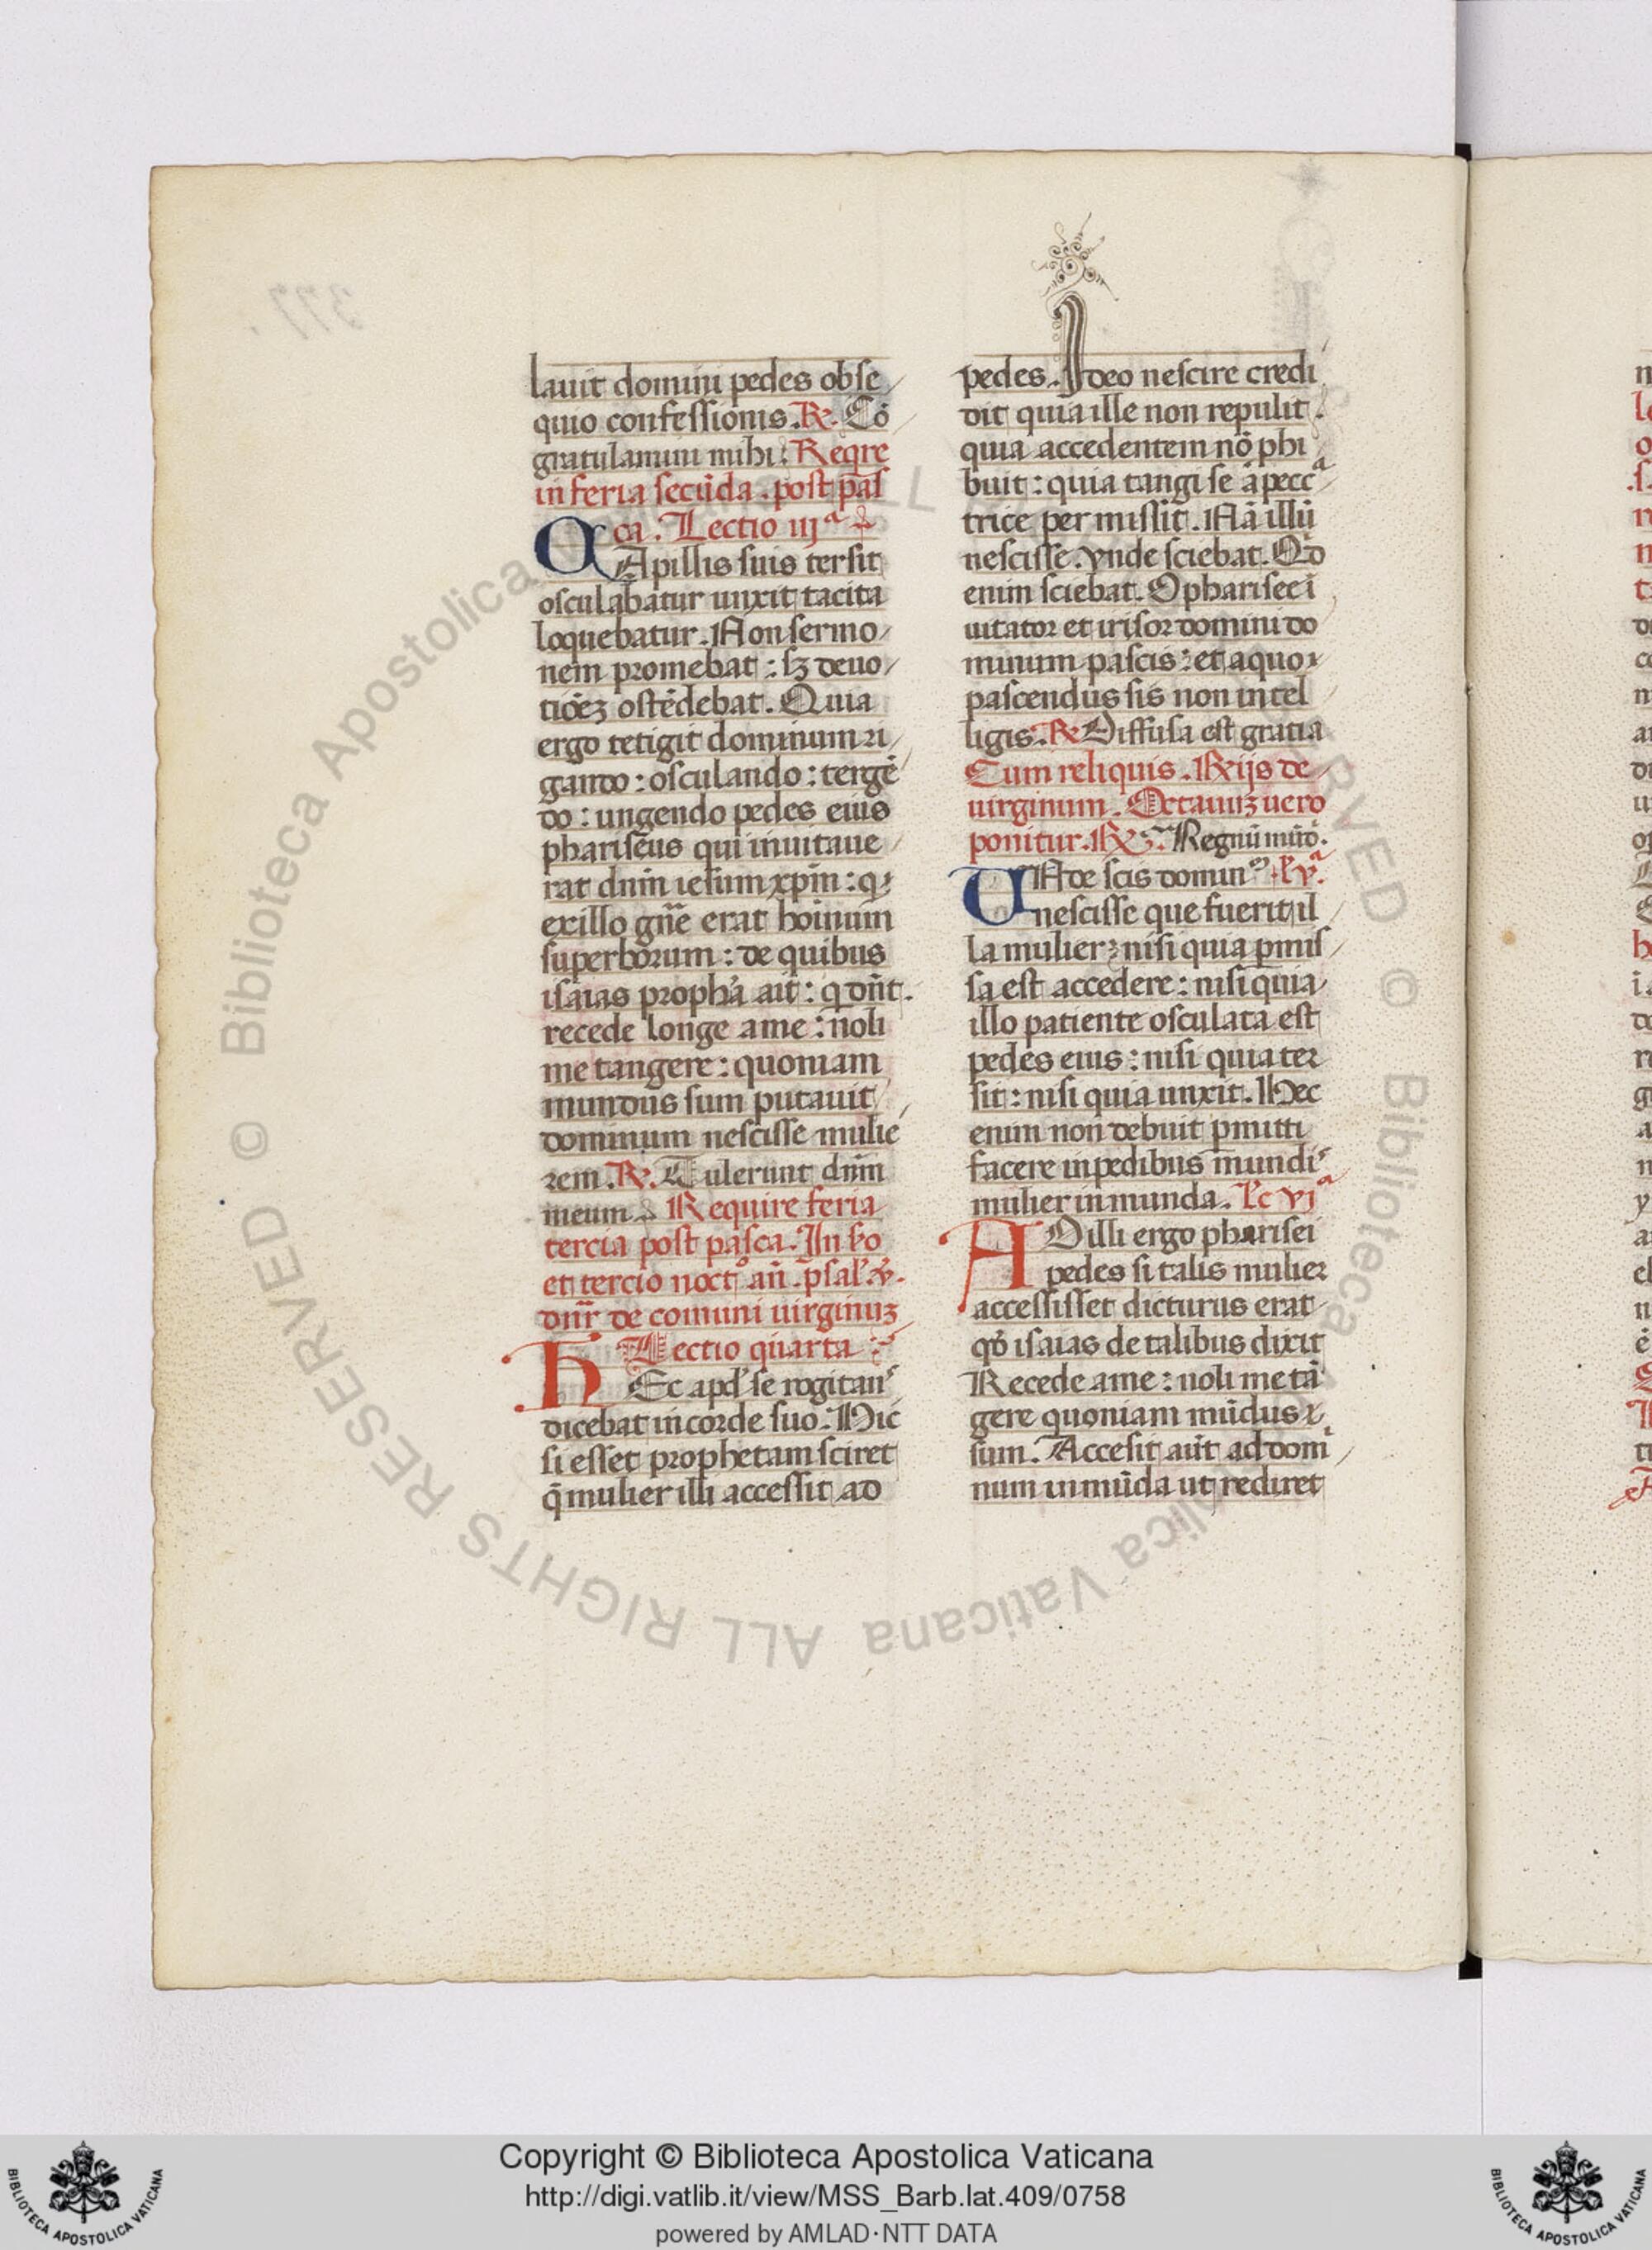 lauit domini pedes obse
quio confessionis. R. Cō
gratulamini mihi: Reqre
in feria secūda. post pas
ca. Lectio iijª
CApillis suis tersit
osculabatur unxit tacita
loquebatur. Non sermo
nem promebat: sꝫ deuo
tiōeꝫ ostēdebat. Quia
ergo tetigit dominum ri
gando: osculando: tergē
do: ungendo pedes eius
phariseus qui inuitaue
rat dn̄m iesum xp̄m: q
ex illo gn̄e erat hoīnum
superborum: de quibus
isaias propha ait: q dn̄t.
recede longe a me: noli
me tangere: quoniam
mundus sum putauit
dominum nescisse mulie
rem. R. Tulerunt dn̄m
meum. Require feria
tercia post pasca. In ſo
et tercio noct an̄. psal. v.
dn̄r de comuni uirginuꝫ
Lectio quarta
HEc apd se rogitans
dicebat in corde suo. Hic
si esset prophetam sciret
q̄ mulier illi accessit ad
pedes. Ideo nescire credi
dit quia ille non repulit.
quia accedentem nō phi
buit: quia tangi se a pecc
trice permissit. Nā illū
nescisse. vnde sciebat. Qd
enim sciebat. O pharisee ī
uitator et irisor domini do
minum pascis: et a quo
pascendus sis non intel
ligis. R. Diffusa est gratia
Cum reliquis. Rijs de
uirginum. Octauuꝫ uero
ponitur. R. Regnū mūd.
UNde scis domin⁹. L. vª.
nescisse que fuerit il
la mulier: nisi quia pmis
sa est accedere: nisi quia
illo patiente osculata est
pedes eius: nisi quia ter
sit: nisi quia unxit. Hec
enim non debuit pmitti
facere in pedibus mundis
mulier inmunda. Lc vjª
ADilli ergo pharisei
pedes si talis mulier
accessisset dicturus erat
qd isaias de talibus dixit
Recede a me: noli me tā
gere quoniam mūdus
sum. Accesit aūt ad domi
num inmūda ut rediret
Copyright © Biblioteca Apostolica Vaticana
http://digi.vatlib.it/view/MSS_Barb.lat.409/0758
powered by AMLAD·NTT DATA